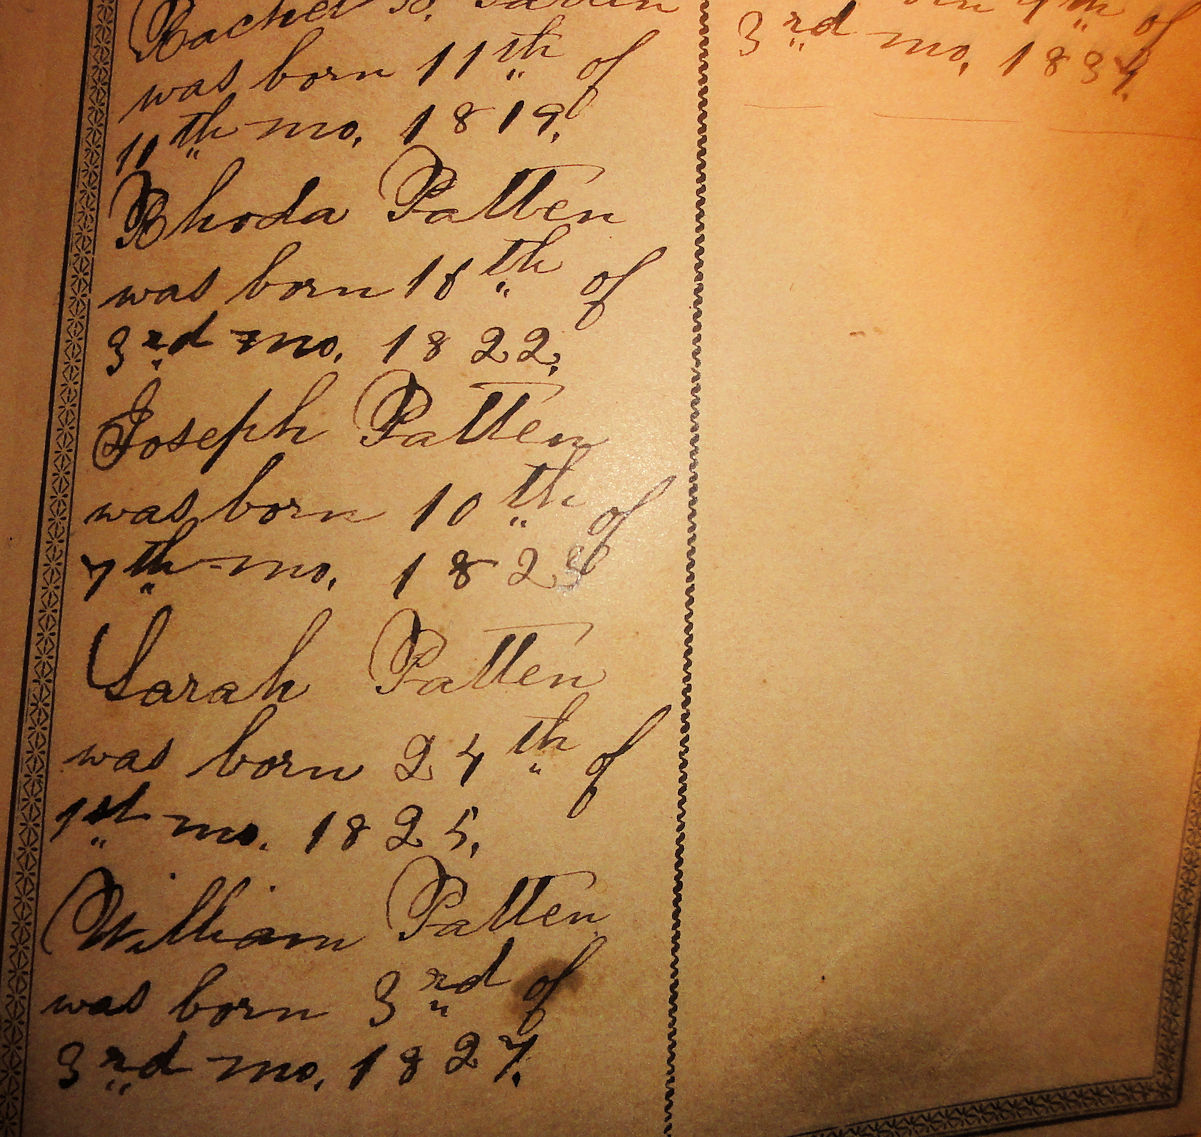 Rachel
was born 11th of
11th mo. 1819.
Rhoda Patten
was born 18th of
3rd mo. 1822.
Joseph Patten
was born 10th of
7th mo. 1823
Sarah Patten
was born 24th of
1st mo. 1825.
William Patten
was born 3rd of
3rd mo. 1827.
of
3rd mo, 1834.